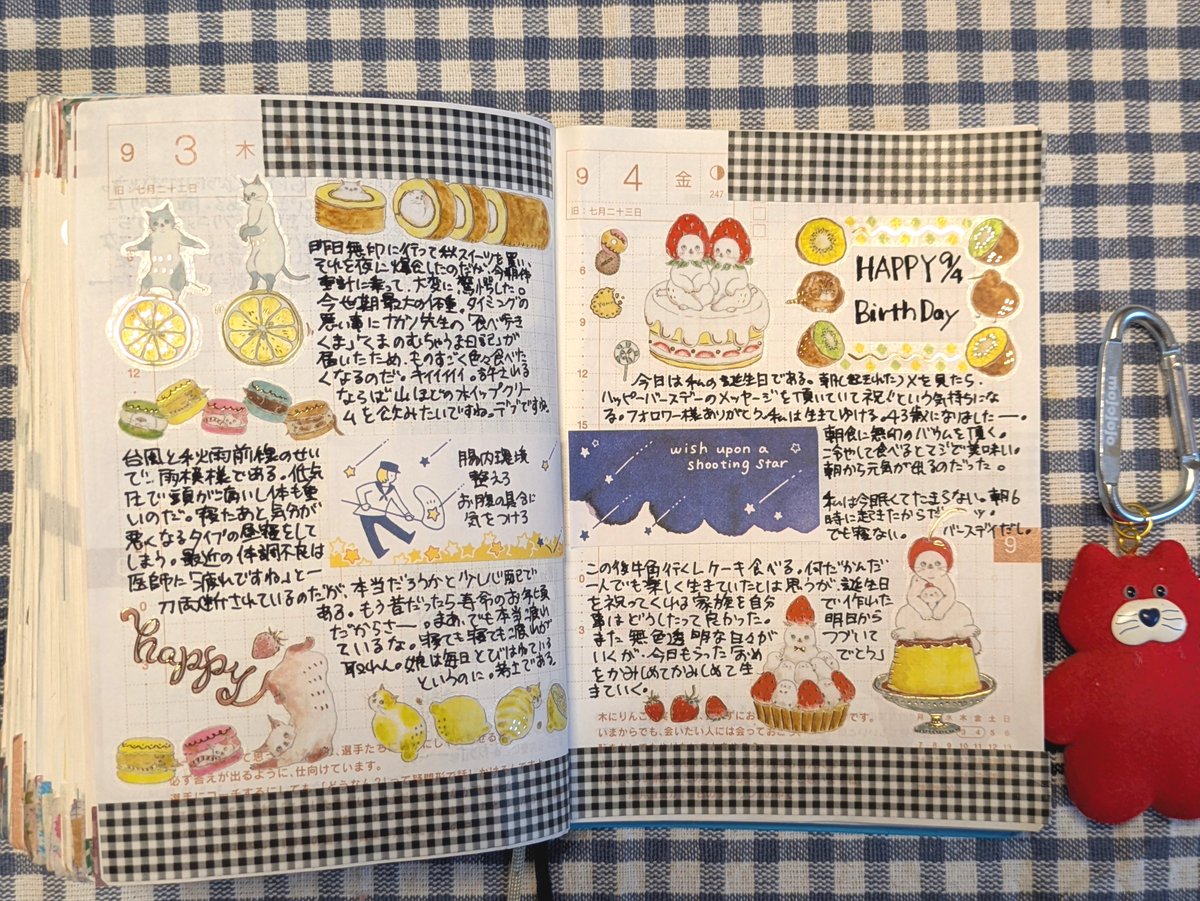 9 3 木
旧：七月二十二日
昨日無印に行って秋スイーツを買い、
それを夜に爆食したのだが、今朝体
重計に乗って、大変に驚愕した。
今世期最大の体重。タイミングの
悪い事にナガノ先生の「食べ歩き
くま」「くまのむちゃうま日記」が
届いたため、ものすごく色々食べた
くなるのだ。キイイイイ。許される
ならば山ほどのホイップクリー
ムを飲みたいですね。デブですね。
12
台風と秋雨前線のせい
で、雨模様である。低気
圧で頭が痛いし体も重
いのだ。寝たあと気分が
悪くなるタイプの昼寝をして
しまう。最近の体調不良は
医師に「疲れですね」と一
刀両断されているのだが、本当だろうかと少しく心配で
ある。もう昔だったら寿命のお年頃
だからさー。まあ、でも本当に疲れ
ているな。寝ても寝ても疲れが
取れん。娘は毎日とびはねている
というのに。若土である。
腸内環境
整えろ
お腹の具合に
気をつけろ
happy
必ず答えが出るように、仕向けています。
9 4 金
247
旧：七月二十三日
6
9
12
15
HAPPY 9/4
BirthDay
今日は私の誕生日である。朝に起きれたついXを見たら、
ハッピーバースデーのメッセージを頂いていて祝ぐという気持ちにな
る。フォロワー様ありがとう。私は生きてゆける。43歳になりましたー。
朝食に無印のバウムを頂く。
冷やして食べるとマジで美味しい。
朝から元気が出るのだった。
wish upon a
shooting star
私は今眠くてたまらない。朝6
時に起きたからだ
でも寝ない。バースデイだし。
9
この後牛角行くしケーキ食べる。何だかんだ
一人でも楽しく生きていたとは思うが、誕生日
を祝ってくれる家族を自分で作れた
事はどうしたって良かった。明日から
また無色透明な日々がつづいて
いくが、今日もらった「おめでとう」
をかみしめてかみしめて生
きていく。
いまからでも、会いたい人には会っておこう
月 水 木 金 土 日
mojojojo